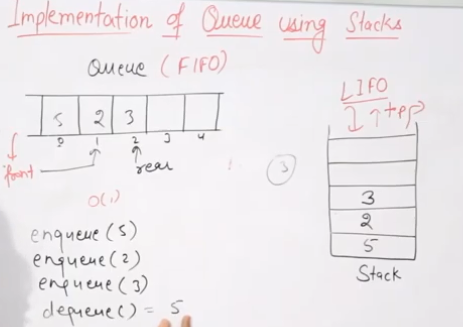 Implementation of Queue using Stacks
Queue (FIFO)
5 2 3
0 1 2 3 4
front
rear
O(1)
enqueue(5)
enqueue(2)
enqueue(3)
dequeue() = 5
3
LIFO
top
3
2
5
Stack